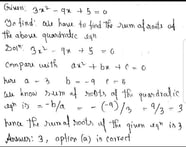 Given: 3x² - 9x + 5 = 0
To find: we have to find the sum of roots of
the above quadratic eqⁿ
Solⁿ: 3x² - 9x + 5 = 0
Compare with ax² + bx + c = 0
here a = 3 b = -9 c = 5
we know sum of roots of the quadratic
eqⁿ is = -b/a = -(-9)/3 = 9/3 = 3
hence the sum of roots of the given eqⁿ is 3
Answer: 3, option (a) is correct